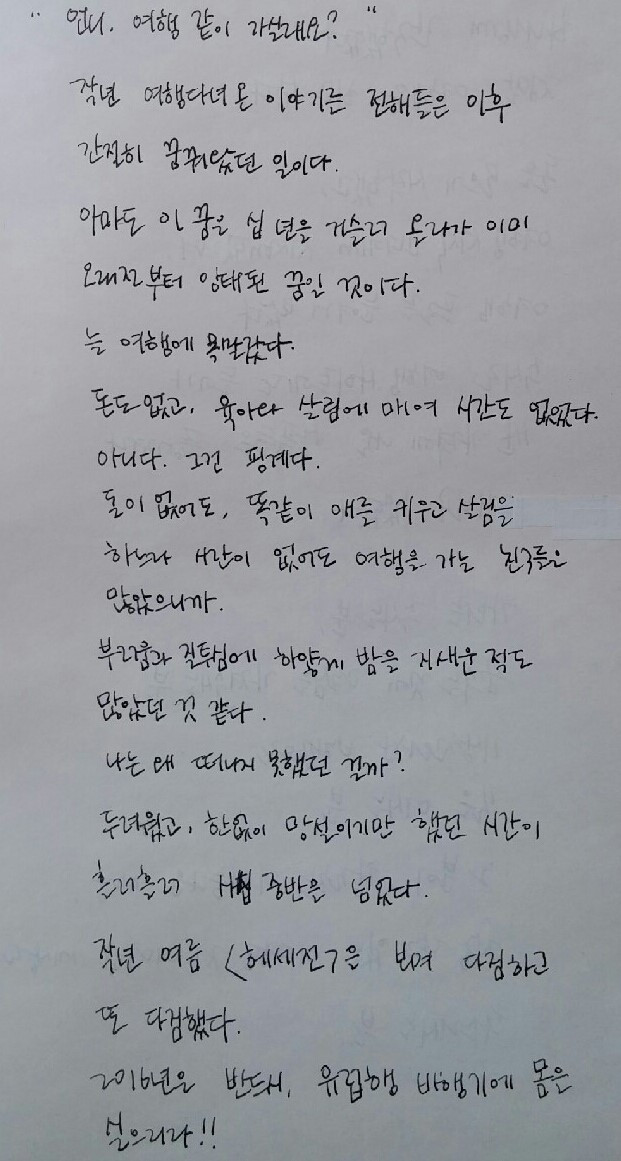 " 언니. 여행 같이 가실래요? "
작년 여행다녀온 이야기를 전해들은 이후
간절히 꿈꿔왔던 일이다.
아마도 이 꿈은 십 년을 거슬러 올라가 이미
오래전부터 잉태된 꿈일 것이다.
늘 여행에 목말랐다.
돈도 없고, 육아와 살림에 매여 시간도 없었다.
아니다. 그건 핑계다.
돈이 없어도, 똑같이 애를 키우고 살림을
하느라 시간이 없어도 여행을 가는 친구들은
많았으니까.
부러움과 질투심에 하얗게 밤을 지새운 적도
많았던 것 같다.
나는 왜 떠나지 못했던 걸까?
두려웠고, 한없이 망설이기만 했던 시간이
흘러흘러 사십 중반을 넘었다.
작년 여름 <헤세전>을 보며 다짐하고
또 다짐했다.
2016년은 반드시, 유럽행 비행기에 몸을
실으리라!!